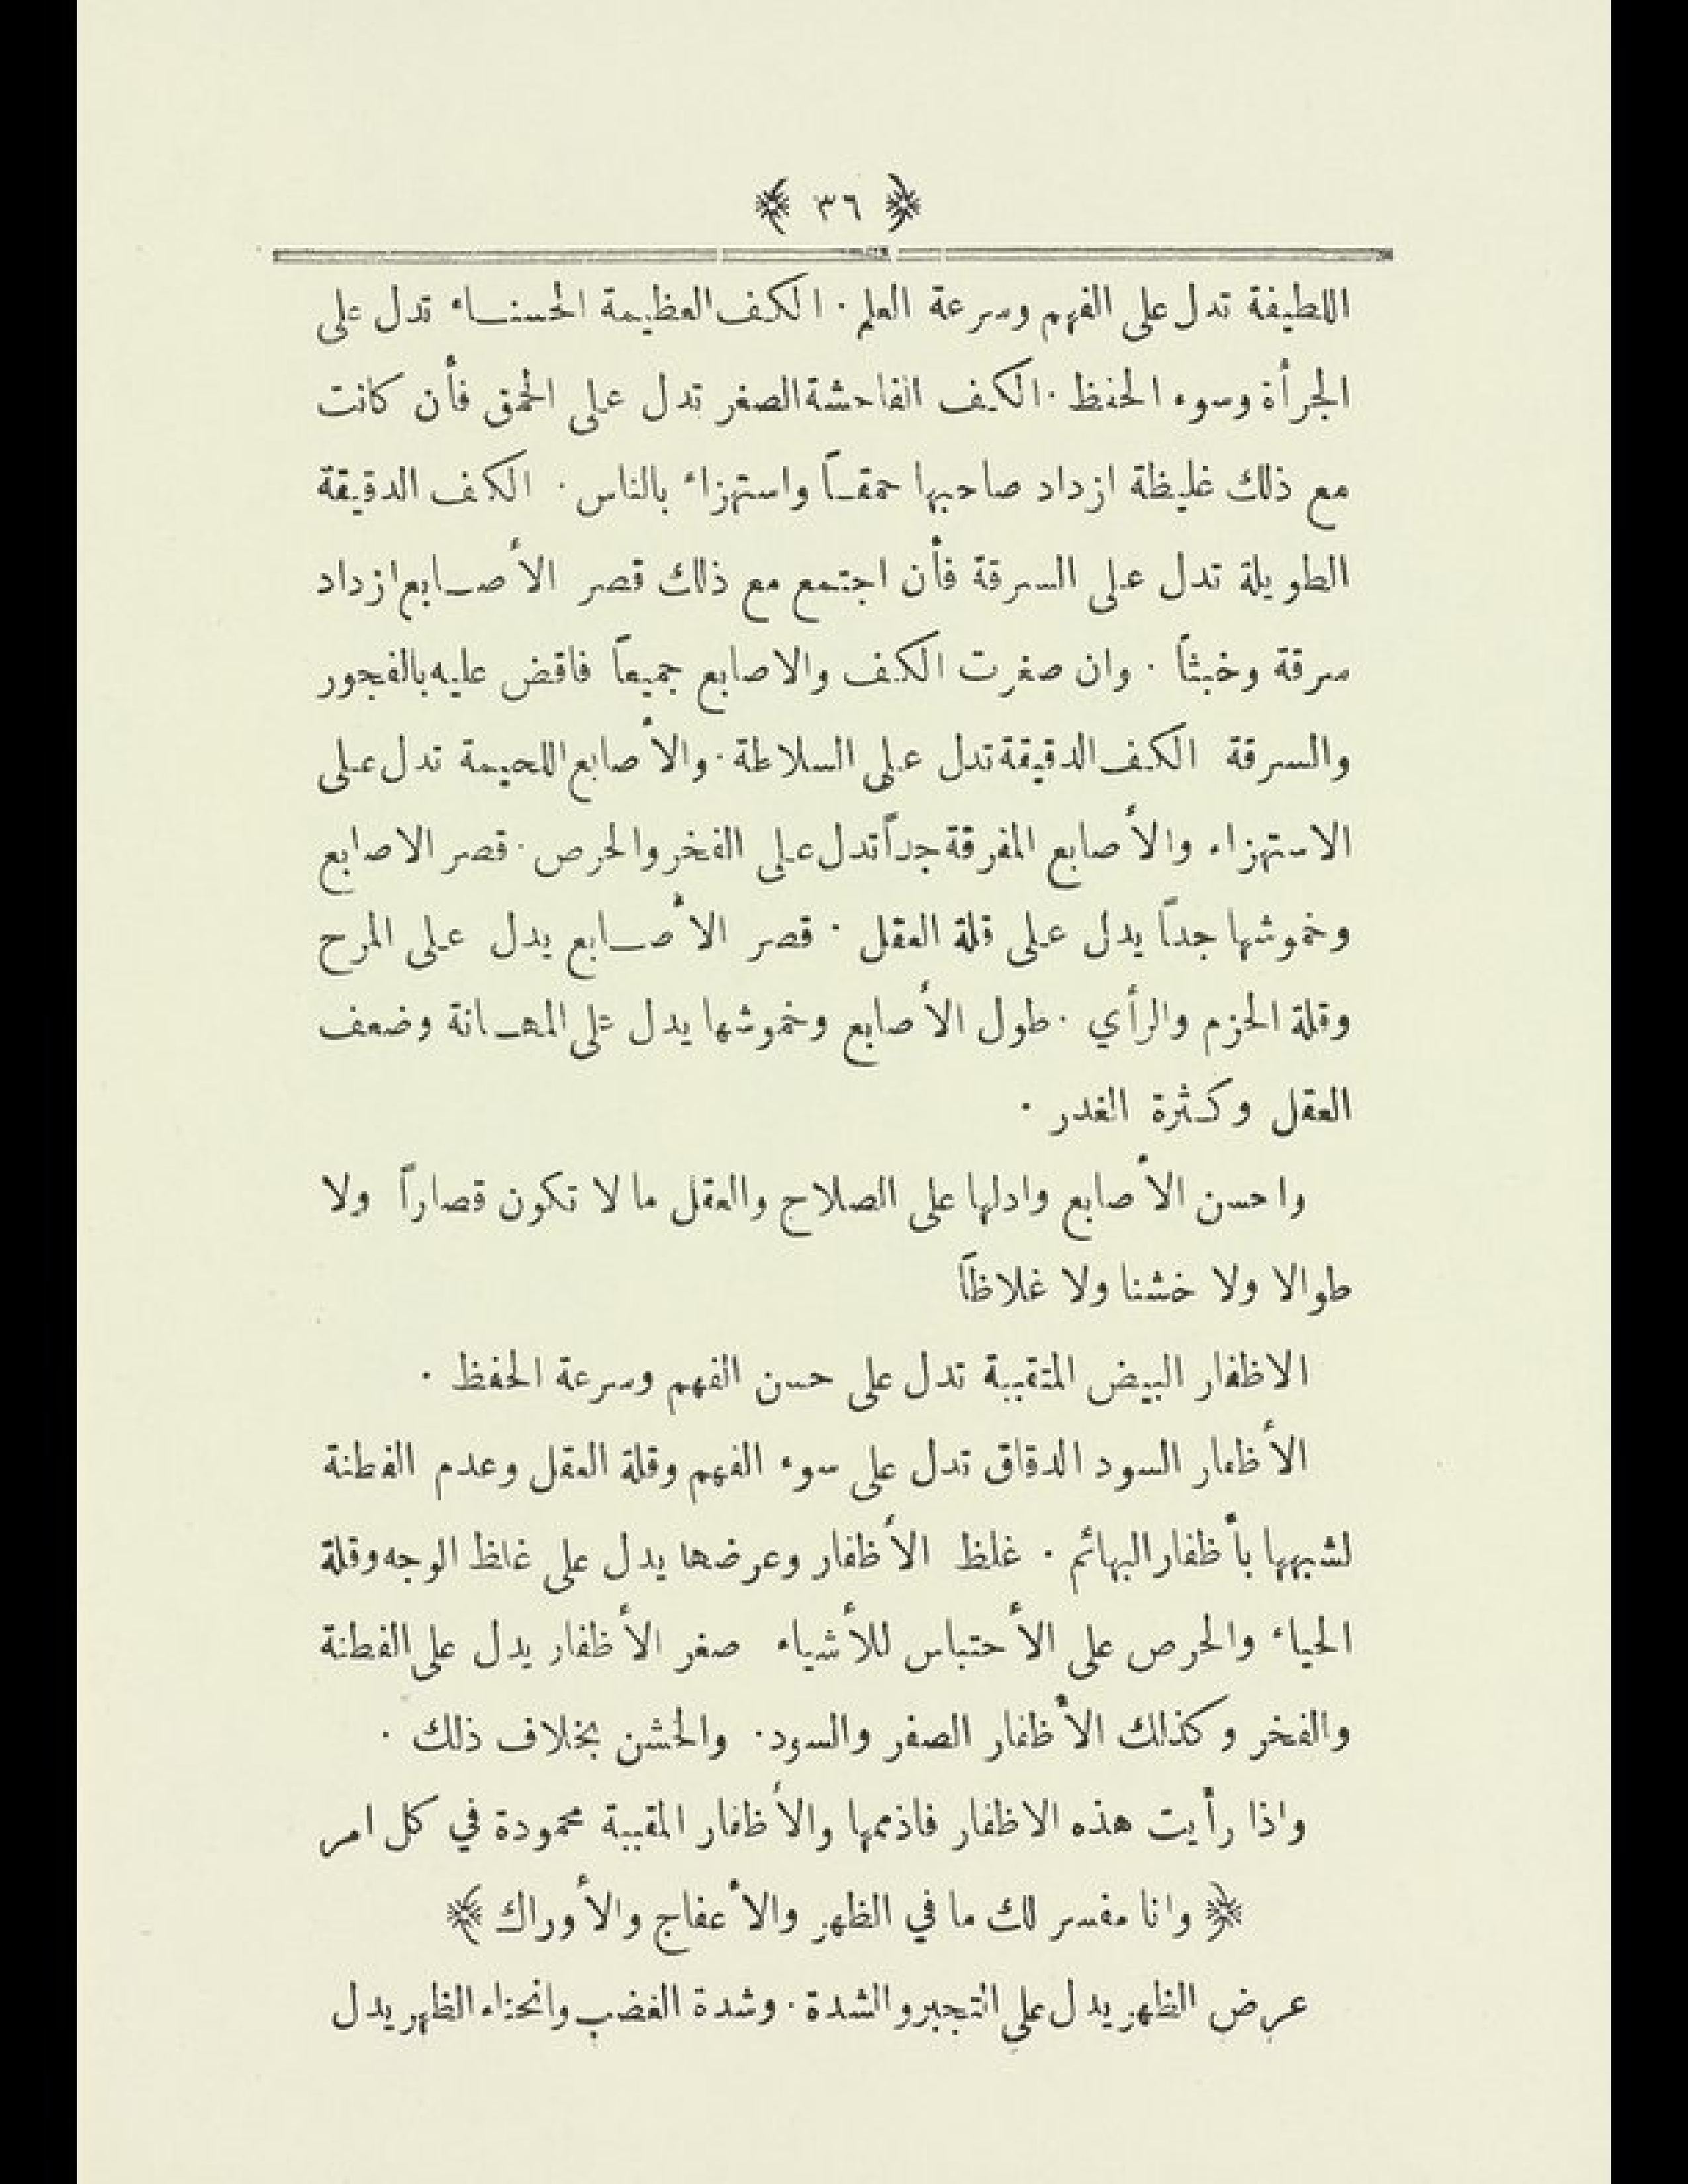 ﴿ ٣٦ ﴾
اللطيفة تدل على الفهم وسرعة العلم · الكف العظيمة الحسناء تدل على
الجرأة وسوء الحفظ · الكف الفاحشة الصغر تدل على الحمق فأن كانت
مع ذلك غليظة ازداد صاحبها حمقاً واستهزاء بالناس · الكف الدقيقة
الطويلة تدل على السرقة فأن اجتمع مع ذلك قصر الأصابع ازداد
سرقة وخبثاً · وان صغرت الكف والاصابع جميعاً فاقض عليه بالفجور
والسرقة الكف الدقيقة تدل على السلاطة · والأصابع اللحيمة تدل على
الاستهزاء والأصابع المفرقة جداً تدل على الفخر والحرص · قصر الاصابع
وخموشها جداً يدل على قلة العقل · قصر الأصابع يدل على المرح
وقلة الحزم والرأي · طول الأصابع وخموشها يدل على المهانة وضعف
العقل وكثرة الغدر ·
واحسن الأصابع وادلها على الصلاح والعقل ما لا تكون قصاراً ولا
طوالا ولا خشنا ولا غلاظاً
الاظفار البيض المتقببة تدل على حسن الفهم وسرعة الحفظ ·
الأظفار السود الدقاق تدل على سوء الفهم وقلة العقل وعدم الفطنة
لشبهها بأظفار البهائم · غلظ الأظفار وعرضها يدل على غلظ الوجه وقلة
الحياء والحرص على الأحتباس للأشياء صغر الأظفار يدل على الفطنة
والفخر وكذلك الأظفار الصفر والسود · والخشن بخلاف ذلك ·
واذا رأيت هذه الاظفار فاذممها والأظفار المقببة محمودة في كل امر
﴿ وانا مفسر لك ما في الظهر والأعفاج والأوراك ﴾
عرض الظهر يدل على التجبر والشدة · وشدة الغضب وانحناء الظهر يدل